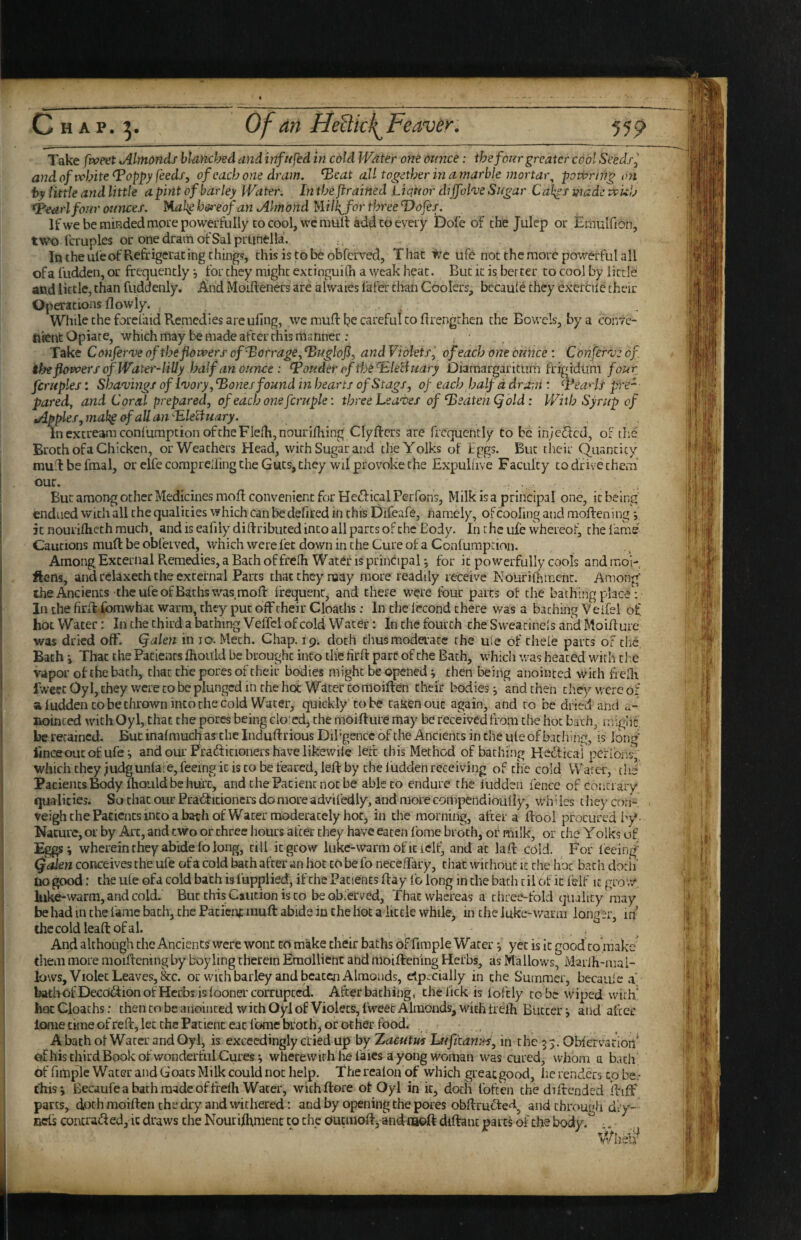 CHAP. 3. Of an Hectick Feaver. 559
Take sweet Almonds blanched and infused in cold Water one ounce: the four greater cool Seeds,
and of white Poppy seeds, of each one dram. Beat all together in a marble mortar, powring on
by little and little a pint of barley Water. In the strained Liquor dissolve Sugar Cakes made with
Pearl four ounces. Make hereof an Almond Milk for three Doses.
If we be minded more powerfully to cool, we must add to every Dose of the Julep or Emulsion,
two scruples or one dram of Sal prunella.
In the use of Refrigerating things, this is to be observed, That we use not the more powerful all
of a sudden, or frequently; for they might extinguish a weak heat. But it is better to cool by little
and little, than suddenly. And Moisteners are alwaies safer than Coolers, because they exercise their
Operations slowly.
While the foresaid Remedies are using, we must be careful to strengthen the Bowels, by a conve-
nient Opiate, which may be made after this manner:
Take Conserve of the flowers of Borrage, Bugloss, and Violets, of each one ounce: Conserve of
the flowers of Water-lilly half an ounce: Pouder of the Electuary Diamargaritum frigidum four
scruples: Shavings of Ivory, Bones found in hearts of Stags, of each half a dram: Pearls pre-
pared, and Coral prepared, of each one scruple: three Leaves of Beaten Gold: With Syrup of
Apples, make of all an Electuary.
In extream consumption of the Flesh, nourishing Clysters are frequently to be injected, of the
Broth of a Chicken, or Weathers Head, with Sugar and the Yolks of Eggs. But their Quantity
must be smal, or else compressing the Guts, they wil provoke the Expulsive Faculty to drive them
out.
But among other Medicines most convenient for Hectical Persons, Milk is a principal one, it being
endued with all the qualities which can be desired in this Disease, namely, of cooling and mostening;
it nourisheth much, and is easily distributed into all parts of the Body. In the use whereof, the same
Cautions must be observed, which were set down in the Cure of a Consumption.
Among External Remedies, a Bath of fresh Water is principal; for it powerfully cools and moi-
stens, and relaxeth the external Parts that they may more readily receive Nourishment. Among
the Ancients the use of Baths was most frequent, and there were four parts of the bathing place:
In the first somwhat warm, they put off their Cloaths: In the second there was a bathing Vessel of
hot Water: In the third a bathing Vessel of cold Water: In the fourth the Sweatiness and Moisture
was dried off. Galen in 10. Meth. Chap. 19. doth thus moderate the use of these parts of the
Bath; That the Patients should be brought into the first part of the Bath, which was heated with the
vapor of the bath, that the pores of their bodies might be opened; then being anointed with fresh
sweet Oyl, they were to be plunged in the hot Water to moisten their bodies; and then they were of
a sudden to be thrown into the cold Water, quickly to be taken out again, and to be dried and a-
nointed with Oyl, that the pores being closed, the moisture may be received from the hot bath, might
be retained. But inasmuch as the Industrious Diligence of the Ancients in the use of bathing, is long
since out of use; and our Practitioners have likewise left this Method of bathing Hectical persons,
which they judg unsafe, seeing it is to be feared, lest by the sudden receiving of the cold Water, the
Patients Body should be hurt, and the Patient not be able to endure the sudden sence of contrary
qualities. So that our Practitioners do more advisedly, and more compendiously, whiles they con-
veigh the Patients into a bath of Water moderately hot, in the morning, after a stool procured by
Nature, or by Art, and two or three hours after they have eaten some broth, or milk, or the Yolks of
Eggs; wherein they abide so long, till it grow luke-warm of it self, and at last cold. For seeing
Galen conceives the use of a cold bath after an hot to be so necessary, that without it the hot bath doth
no good: the use of a cold bath is supplied, if the Patients stay so long in the bath til of it self it grow
luke-warm, and cold. But this Caution is to be observed, That whereas a three-fold quality may
be had in the same bath, the Patient must abide in the hot a little while, in the luke-warm longer, in
the cold least of al.
And although the Ancients were wont to make their baths of simple Water; yet is it good to make
them more moistening by boyling therein Emollient and moistening Herbs, as Mallows, Marsh-mal-
lows, Violet Leaves, &c. or with barley and beaten Almonds, especially in the Summer, because a
bath of Decoction of Herbs is sooner corrupted. After bathing, the sick is softly to be wiped with
hot Cloaths: then to be anointed with Oyl of Violets, sweet Almonds, with fresh Butter; and after
some time of rest, let the Patient eat some broth, or other food.
A bath of Water and Oyl, is exceedingly cried up by Zacutus Lusitanus, in the 35. Observation
of his third Book of wonderful Cures; wherewith he saies a yong woman was cured, whom a bath
of simple Water and Goats Milk could not help. The reason of which great good, he renders to be
this; Because a bath made of fresh Water, with store of Oyl in it, doth soften the distended stiff
parts, doth moisten the dry and withered: and by opening the pores obstructed, and through dry-
ness contracted, it draws the Nourishment to the outmost, and most distant parts of the body.
When